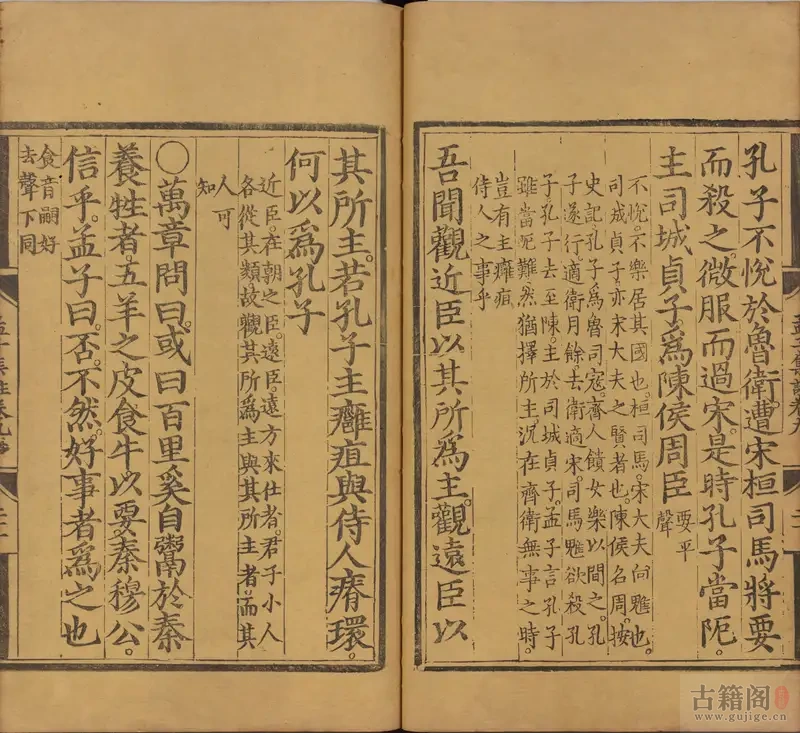 孔子不悅於魯衛遭宋桓司馬將要
而殺之微服而過宋是時孔子當阨。
主司城貞子為陳侯周臣
要平
聲
不悅不樂居其國也。桓司馬宋大夫向魋也。
司城貞子亦宋大夫之賢者也。陳侯名周。按
史記孔子為魯司寇齊人饋女樂以間之孔
子遂行適衛月餘去衛適宋司馬魋欲殺孔
子孔子去至陳主於司城貞子孟子言孔子
雖當阨難然猶擇所主況在齊衛無事之時。
豈有主癰疽
侍人之事乎
吾聞觀近臣以其所為主。觀遠臣以
其所主。若孔子主癰疽與侍人瘠環。
何以為孔子
近臣在朝之臣。遠臣遠方來仕者。君子小人
各從其類故觀其所為主與其所主者而其
人可
知
○萬章問曰。或曰百里奚自鬻於秦
養牲者。五羊之皮食牛以要秦穆公。
信乎。孟子曰。否。不然。好事者為之也
食音嗣好
去聲下同
古籍阁
www.gujige.cn